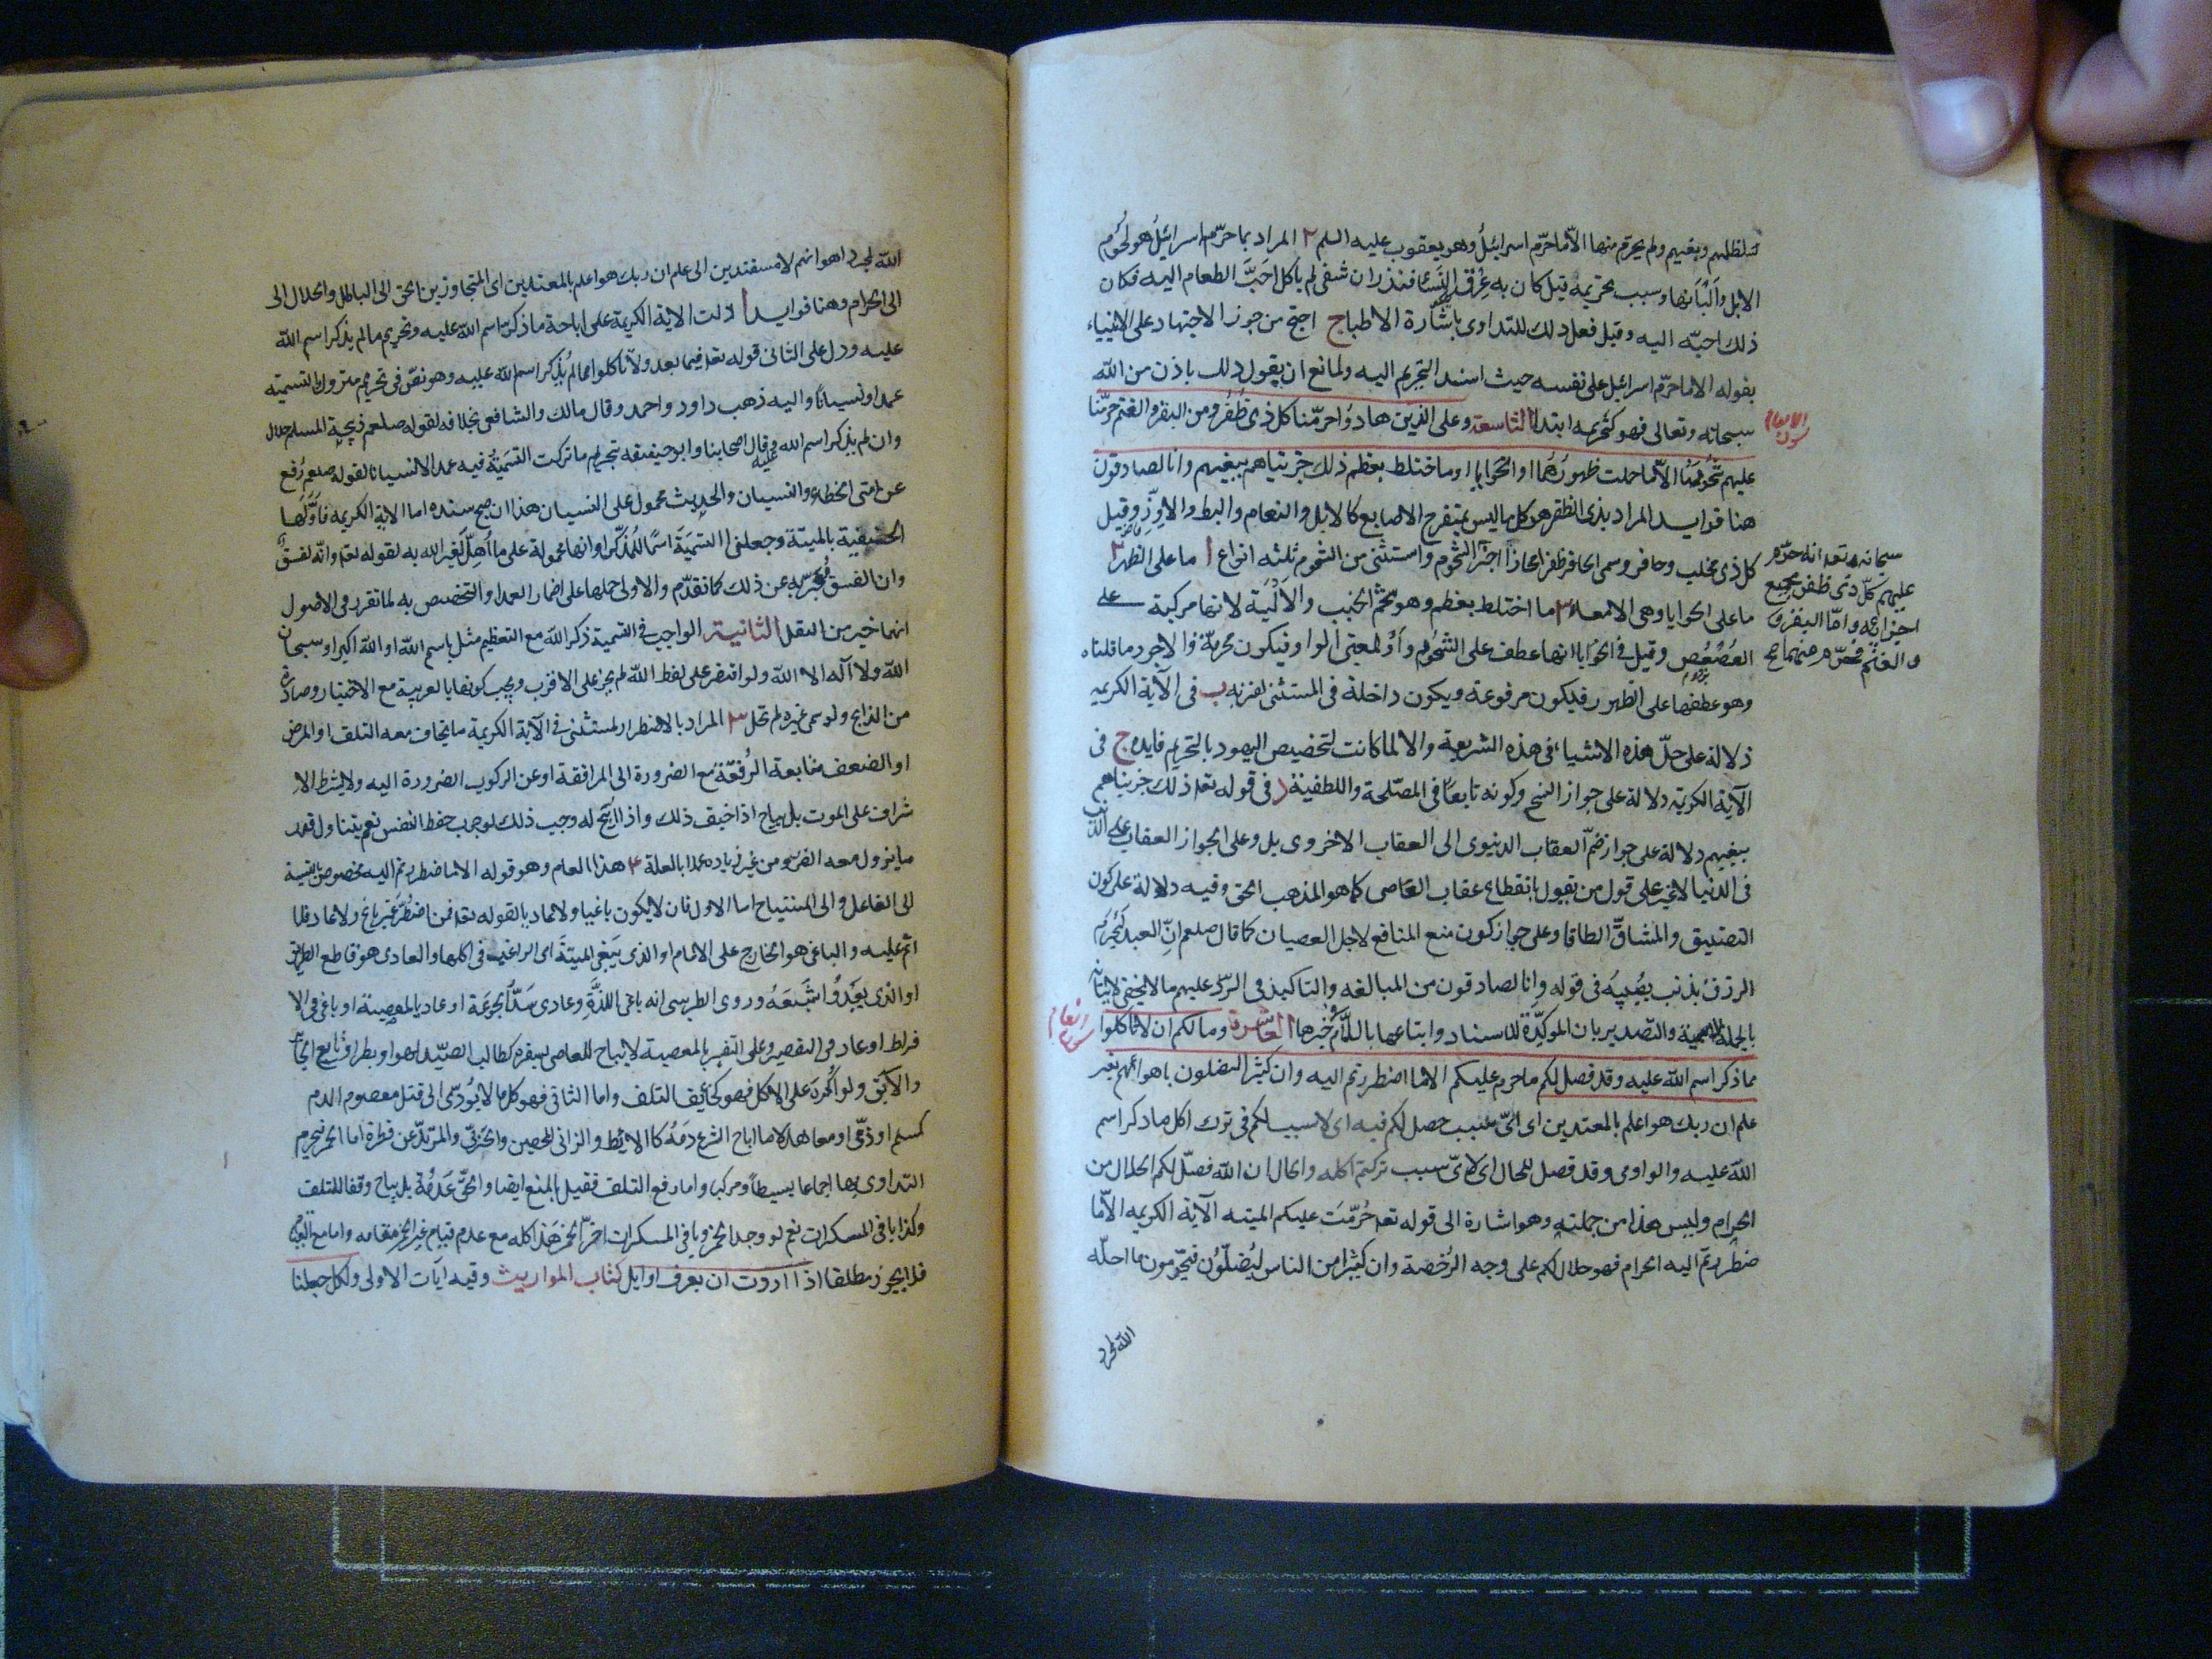 لظلمهم وبغيهم ولم يحرم منها الّا ما حرّم اسرائيل وهو يعقوب عليه السلم ٢ المراد بما حرّم اسرائيل هو لحوم
الابل والبانها وسبب تحريمه قيل كان به عرق النسا فنذر ان شفى لم ياكل احبّ الطعام اليه فكان
ذلك احبّه اليه وقيل فعل ذلك للتداوى باشارة الاطبا ج احتج من جوز الاجتهاد على الانبياء
بقوله الا ما حرّم اسرائيل على نفسه حيث اسند التحريم اليه ولمانع ان يقول ذلك باذن من الله
سبحانه وتعالى فهو كتحريمه ابتداء التاسعة وعلى الذين هادوا حرّمنا كل ذى ظفر ومن البقر والغنم حرّمنا
عليهم شحومهما الّا ما حملت ظهورهما او الحوايا او ما اختلط بعظم ذلك جزيناهم ببغيهم وانا لصادقون
هنا فوايد المراد بذى الظفر هو كل ما ليس بمنفرج الاصابع كالابل والنعام والبط والاوز وقيل
كل ذى مخلب وحافر وسمى الحافر ظفرا مجازا اخر الشحوم واستثنى من الشحوم ثلثه انواع ا ما على الظهر ٢
ما على الحوايا وهى الامعاء ٣ ما اختلط بعظم وهو شحم الجنب والالية لانها مركبة على
العصعص وقيل فى الحوايا انها عطف على الشحوم واو بمعنى الواو فيكون محرمة والاجود ما قلناه
وهو عطفها على الظهور فيكون مرفوعة ويكون داخلة فى المستثنى لقربه ب فى الآية الكريمه
دلالة على حلّ هذه الاشياء فى هذه الشريعة والا لما كانت لتخصيص اليهود بالتحريم فايده ج فى
الآية الكريمة دلالة على جواز النسخ وكونه تابعا فى المصلحة واللطفية د فى قوله تعا ذلك جزيناهم
ببغيهم دلالة على جواز ضمّ العقاب الدنيوى الى العقاب الاخروى بل وعلى الجواز العقاب على الذنب
فى الدنيا لا غير على قول من يقول بانقطاع عقاب العاصى كما هو المذهب الحق وفيه دلالة على كون
التضييق والمشاق الطافا وعلى جواز كون منع المنافع لاجل العصيان كما قال صلعم انّ العبد ليحرم
الرزق بذنب يصيبه فى قوله وانا لصادقون من المبالغه والتاكيد فى الردّ عليهم ما لا يخفى لاتيانه
بالجملة الاسمية والتصدير بان الموكدة للاسناد واتباعها باللام وخبرها العاشرة وما لكم ان لا تاكلوا
مما ذكر اسم الله عليه وقد فصل لكم ما حرم عليكم الا ما اضطررتم اليه وان كثيرا ليضلون باهوائهم بغير
علم ان ربك هو اعلم بالمعتدين اى اىّ سبب حصل لكم فيه اى لا سبب لكم فى ترك اكل ما ذكر اسم
الله عليه والواو فى وقد فصل للحال اى لاىّ سبب تركتم اكله والحال ان الله فصّل لكم الحلال من
الحرام وليس هذا من جملته وهو اشارة الى قوله تعا حرّمت عليكم الميته الآية الكريمه الّا ما
ضطررتم اليه الحرام فهو حلال لكم على وجه الرخصة وان كثيرا من الناس ليضلّون فيحرّمون ما احلّه
الله لمجرد
الانعام
سبحانه تعا انه حرّم
عليهم كلّ ذى ظفر بجميع
اجزائه وامّا البقر و
الغنم فحرّم منهما
انعام
الله لمجرد اهوائهم لا مستندين الى علم ان ربك هو اعلم بالمعتدين اى المتجاوزين الحق الى الباطل والحلال الى
الى الحرام وهنا فوايد ا دلت الاية الكريمة على اباحة ما ذكر اسم الله عليه وتحريم ما لم يذكر اسم الله
عليه ودل على الثانى قوله تعا فيما بعد ولا تاكلوا مما لم يذكر اسم الله عليه وهو نصّ فى تحريم متروك التسمية
عمدا او نسيانا واليه ذهب داود واحمد وقال مالك والشافعى بخلافه لقوله صلعم ذبيحة المسلم حلال
وان لم يذكر اسم الله عليه وقال اصحابنا وابو حنيفه بتحريم ما تركت التسمية فيه عمدا لا نسيانا لقوله صلعم رفع
عن امتى الخطاء والنسيان والحديث محمول على النسيان هذا ان صح سنده اما الاية الكريمه فاوّلها
الحنيفية بالميتة وجعلها على ما اهلّ لغير الله به لقوله تعا وانّه لفسق
وان الفسق عن ذلك كما تقدّم والاولى حملها على اضمار العمد او التخصيص به لما تقرر فى الاصول
انهما خير من النقل الثانية الواجب فى التسمية ذكر الله مع التعظيم مثل باسم الله او الله اكبر او سبحان
الله ولا اله الا الله ولو اقتصر على لفظ الله لم يجز على الاقرب ويجب كونها بالعربية مع الاختيار وصادرة
من الذابح ولو سمى غيره لم تحل ٣ المراد بالاضطرار لمستثنى فى الآية الكريمة ما يخاف معه التلف او المرض
او الضعف متابعة الرفقة مع الضرورة الى المرافقة او عن الركوب الضرورة اليه ولا يشترط الا
شراف على الموت بل يباح اذا خيف ذلك واذا ابيح له وجب ذلك لوجوب حفظ النفس نعم يتناول قدر
ما يزول معه الضرر من غير زياده عملا بالعلة ٤ هذا العام وهو قوله الا ما اضطررتم اليه مخصوص بالنسبة
الى الفاعل والى المستباح اما الاول فان لا يكون باغيا ولا عاديا لقوله تعا فمن اضطرّ غير باغ ولا عاد فلا
اثم عليه والباغى هو الخارج على الامام او الذى يبغى الميتة اى الراغب فى اكلها والعادى هو قاطع الطريق
او الذى يعدو شبعه وروى الطبرسى انه باغى اللذة وعادى سدّ الجوعة او عاد بالمعصية او باغ فى الا
فراط او عاد فى التقصير وعلى التفسير بالمعصية لا يباح للعاصى بسفره كطالب الصيد لهوا وبطرا وتابع الجاير
والآبق ولو اكره على الاكل فهو كخائف التلف واما الثانى فهو كل ما لا يؤدّى الى قتل معصوم الدم
كمسلم او ذمّى او معاهد لا ما اباح الشرع دمه كاللايط والزانى المحصن والحربى والمرتدّ عن فطرة اما الخمر فيحرم
التداوى بها اجماعا بسيطا ومركبا واما رفع التلف فقيل بالمنع ايضا والحق عدمه بل يباح دفعا للتلف
وكذا باقى المسكرات نعم لو وجد الخمر وباقى المسكرات اخرّ الخمر هذا كله مع عدم قيام غير الخمر مقامه واما مع
فلا يجوز مطلقا اذا اردت ان يعرف اوايل كتاب المواريث وفيه ايات الاولى ولكل جعلنا